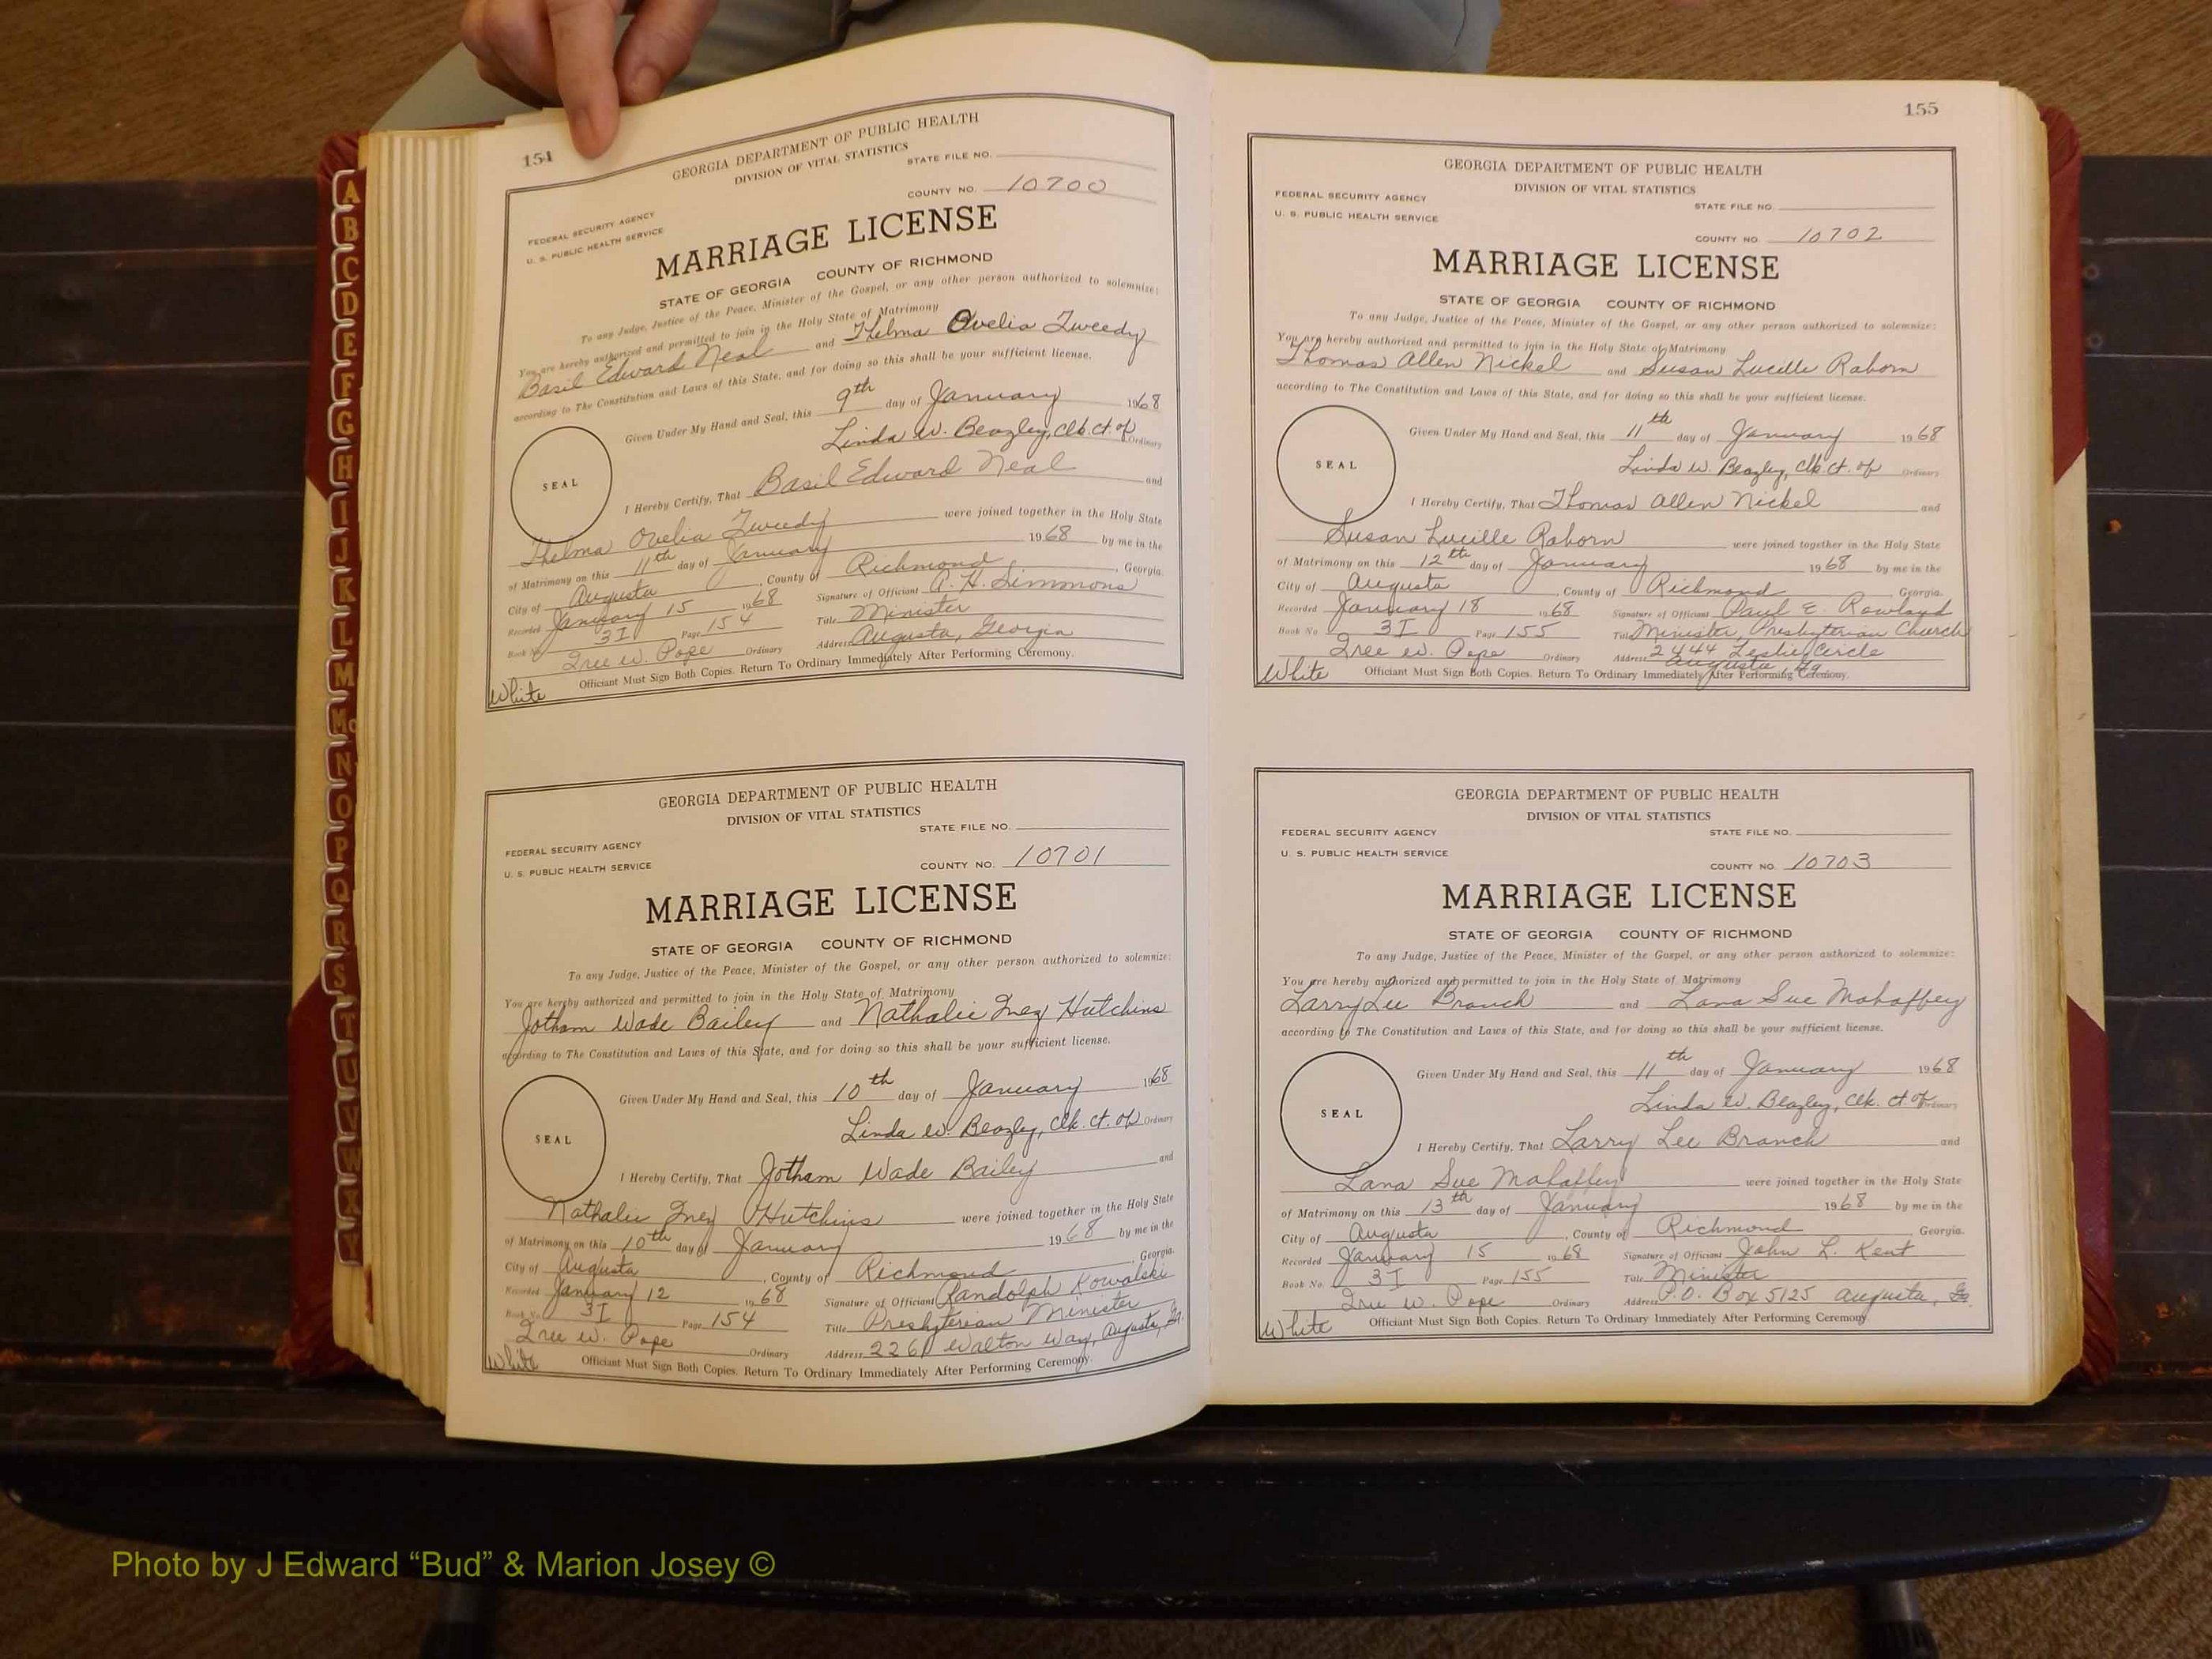 A
B
C
D
E
F
G
H
I
J
K
L
M
Mc
N
O
P
Q
R
S
T
U
V
W
X
Y
154
GEORGIA DEPARTMENT OF PUBLIC HEALTH
DIVISION OF VITAL STATISTICS
STATE FILE NO.
COUNTY NO. 10700
FEDERAL SECURITY AGENCY
U. S. PUBLIC HEALTH SERVICE
MARRIAGE LICENSE
STATE OF GEORGIA COUNTY OF RICHMOND
To any Judge, Justice of the Peace, Minister of the Gospel, or any other person authorized to solemnize:
You are hereby authorized and permitted to join in the Holy State of Matrimony
Basil Edward Neal and Thelma Ovelia Tweedy
according to The Constitution and Laws of this State, and for doing so this shall be your sufficient license.
Given Under My Hand and Seal, this 9th day of January 1968
Linda W. Beazley, Clk. Ct. of Ordinary
SEAL
I Hereby Certify, That Basil Edward Neal and
Thelma Ovelia Tweedy were joined together in the Holy State
of Matrimony on this 11th day of January 1968 by me in the
City of Augusta, County of Richmond, Georgia.
Recorded January 15 1968 Signature of Officiant A. H. Simmons
Book No. 3I Page 154 Title Minister
Tree W. Pope Ordinary Address Augusta, Georgia
White Officiant Must Sign Both Copies. Return To Ordinary Immediately After Performing Ceremony.
GEORGIA DEPARTMENT OF PUBLIC HEALTH
DIVISION OF VITAL STATISTICS
STATE FILE NO.
FEDERAL SECURITY AGENCY
U. S. PUBLIC HEALTH SERVICE
COUNTY NO. 10701
MARRIAGE LICENSE
STATE OF GEORGIA COUNTY OF RICHMOND
To any Judge, Justice of the Peace, Minister of the Gospel, or any other person authorized to solemnize:
You are hereby authorized and permitted to join in the Holy State of Matrimony
Jotham Wade Bailey and Nathalie Inez Hutchins
according to The Constitution and Laws of this State, and for doing so this shall be your sufficient license.
Given Under My Hand and Seal, this 10th day of January 1968
Linda W. Beazley, Clk. Ct. of Ordinary
SEAL
I Hereby Certify, That Jotham Wade Bailey and
Nathalie Inez Hutchins were joined together in the Holy State
of Matrimony on this 10th day of January 1968 by me in the
City of Augusta, County of Richmond, Georgia.
Recorded January 12 1968 Signature of Officiant Randolph Kowalski
Book No. 3I Page 154 Title Presbyterian Minister
Tree W. Pope Ordinary Address 2261 Walton Way, Augusta, Ga.
White Officiant Must Sign Both Copies. Return To Ordinary Immediately After Performing Ceremony.
155
GEORGIA DEPARTMENT OF PUBLIC HEALTH
DIVISION OF VITAL STATISTICS
FEDERAL SECURITY AGENCY
STATE FILE NO.
U. S. PUBLIC HEALTH SERVICE
COUNTY NO. 10702
MARRIAGE LICENSE
STATE OF GEORGIA COUNTY OF RICHMOND
To any Judge, Justice of the Peace, Minister of the Gospel, or any other person authorized to solemnize:
You are hereby authorized and permitted to join in the Holy State of Matrimony
Thomas Allen Nickel and Susan Lucille Raborn
according to The Constitution and Laws of this State, and for doing so this shall be your sufficient license.
Given Under My Hand and Seal, this 11th day of January 1968
Linda W. Beazley, Clk. Ct. of Ordinary
SEAL
I Hereby Certify, That Thomas Allen Nickel and
Susan Lucille Raborn were joined together in the Holy State
of Matrimony on this 12th day of January 1968 by me in the
City of Augusta, County of Richmond, Georgia.
Recorded January 18 1968 Signature of Officiant Paul E. Rowland
Book No. 3I Page 155 Title Minister, Presbyterian Church
Tree W. Pope Ordinary Address 2444 Leslie Circle
Augusta, Ga.
White Officiant Must Sign Both Copies. Return To Ordinary Immediately After Performing Ceremony.
GEORGIA DEPARTMENT OF PUBLIC HEALTH
DIVISION OF VITAL STATISTICS
FEDERAL SECURITY AGENCY
STATE FILE NO.
U. S. PUBLIC HEALTH SERVICE
COUNTY NO. 10703
MARRIAGE LICENSE
STATE OF GEORGIA COUNTY OF RICHMOND
To any Judge, Justice of the Peace, Minister of the Gospel, or any other person authorized to solemnize:
You are hereby authorized and permitted to join in the Holy State of Matrimony
Larry Lee Branch and Lana Sue Mahaffey
according to The Constitution and Laws of this State, and for doing so this shall be your sufficient license.
Given Under My Hand and Seal, this 11th day of January 1968
Linda W. Beazley, Clk. Ct. of Ordinary
SEAL
I Hereby Certify, That Larry Lee Branch and
Lana Sue Mahaffey were joined together in the Holy State
of Matrimony on this 13th day of January 1968 by me in the
City of Augusta, County of Richmond Georgia.
Recorded January 15 1968 Signature of Officiant John L. Kent
Book No. 3I Page 155 Title Minister
Tree W. Pope Ordinary Address P.O. Box 5125 Augusta, Ga.
White Officiant Must Sign Both Copies. Return To Ordinary Immediately After Performing Ceremony.
Photo by J Edward “Bud” & Marion Josey ©